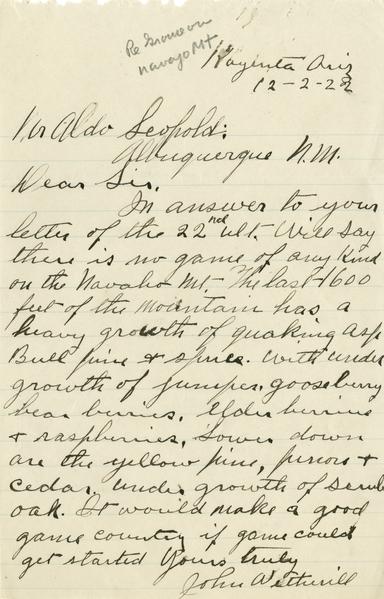 Re Grouse on
Navajo Mt
Kayenta Ariz
12-2-22
Mr Aldo Leopold:
Albuquerque N.M.
Dear Sir.
In answer to your
letter of the 22nd ult. Will say
there is no game of any kind
on the Navaho Mt. The last 1600
feet of the mountain has a
heavy growth of quaking asp
Bull pine & spruce. With under
growth of juniper, gooseberry
bear berries, Elder berries
& raspberries, Lower down
are the yellow pine, pinons &
cedar, under growth of scrub
oak. It would make a good
game country if game could
get started Yours truly
John Wetherill